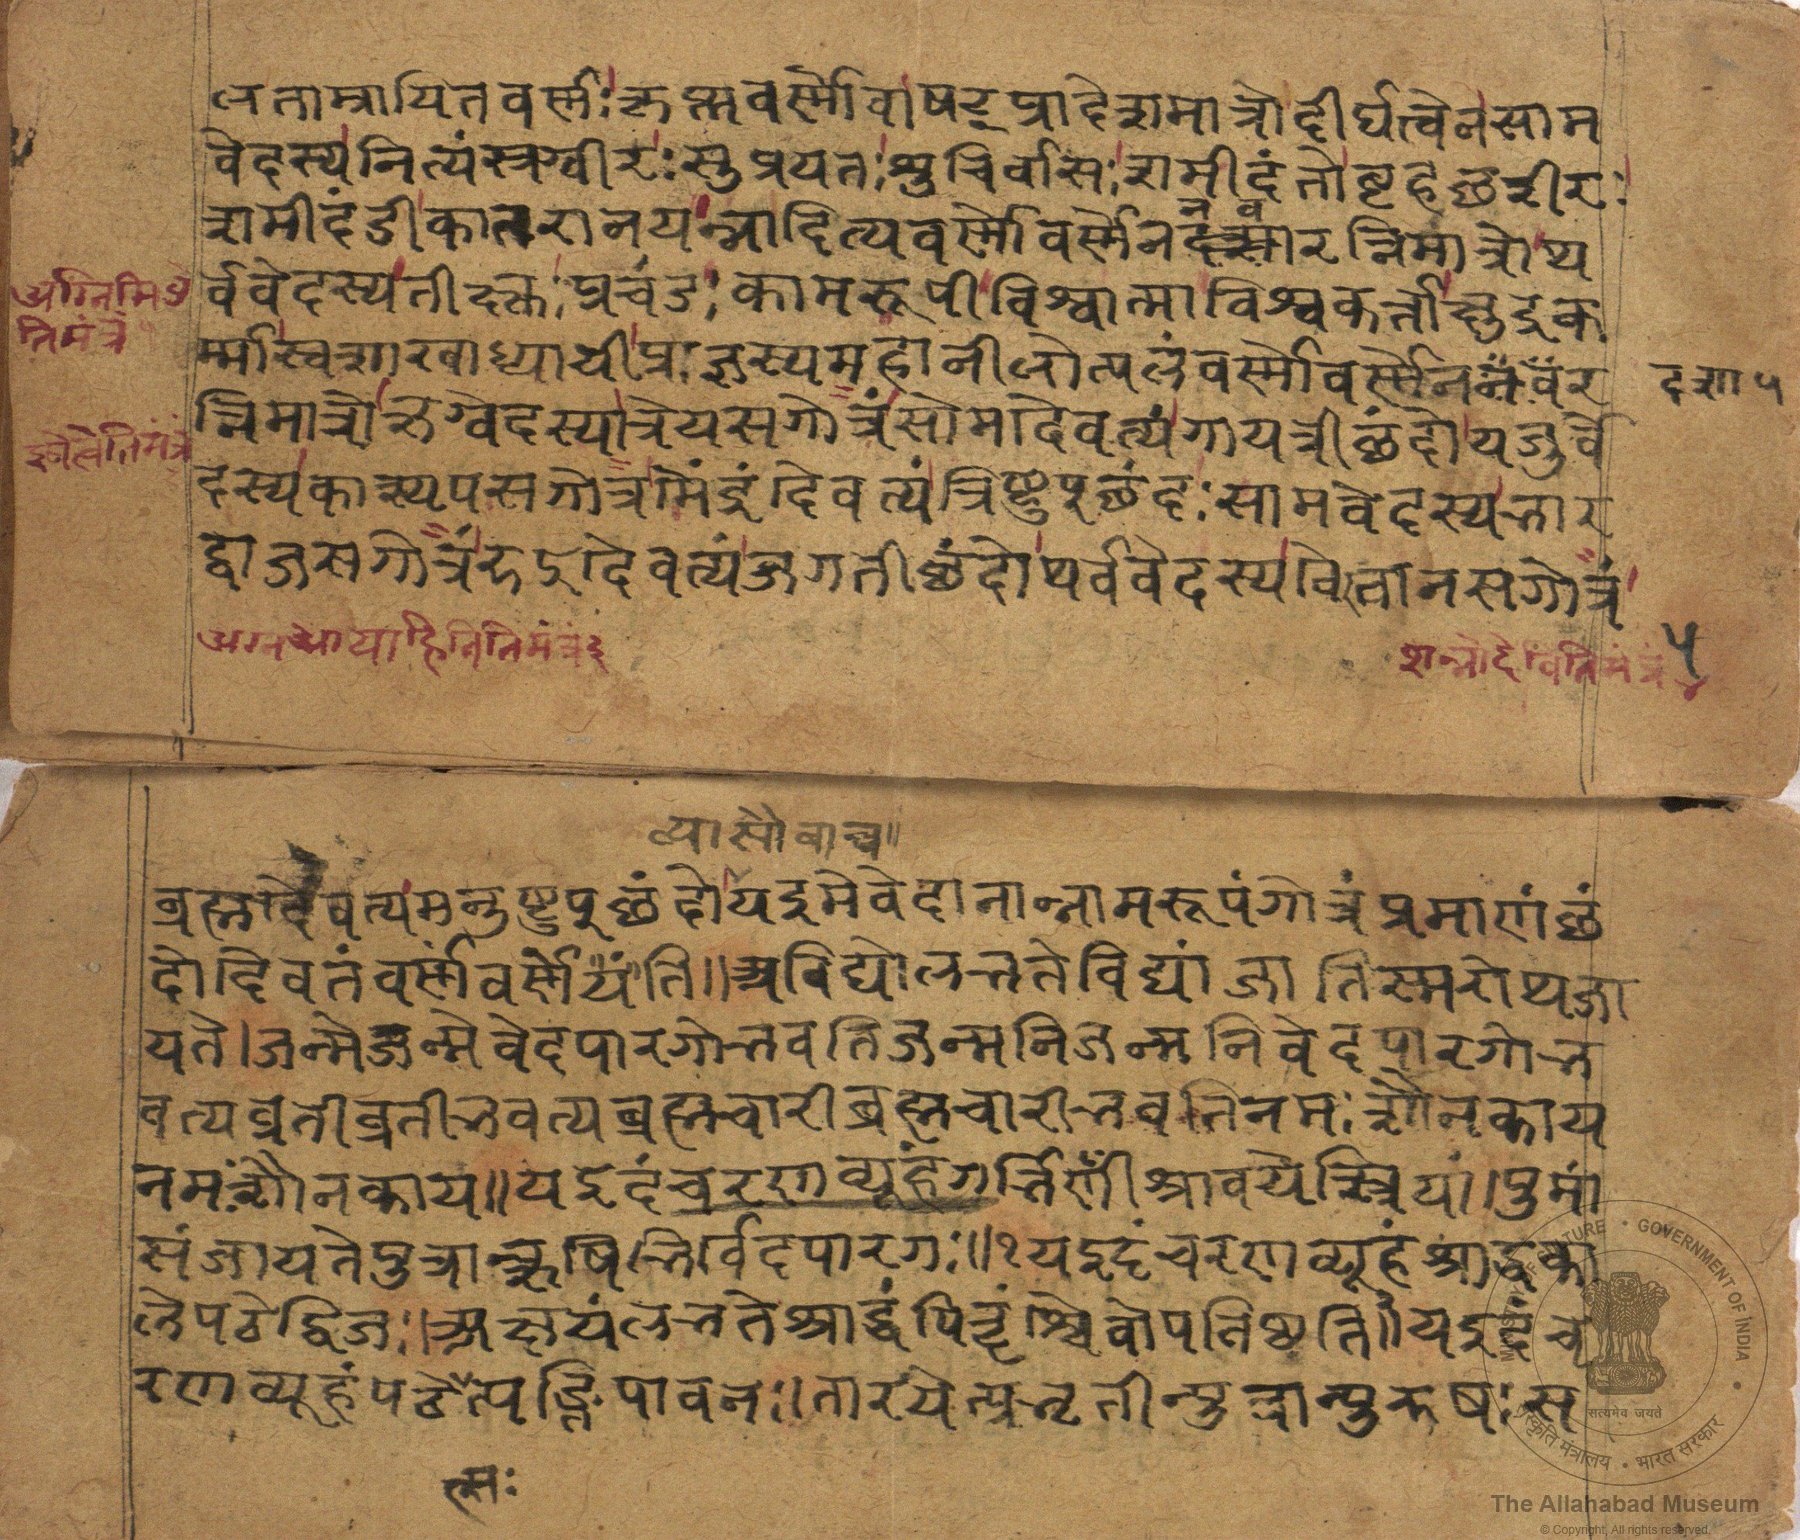 णताम्रायितवर्णः कृष्णवर्णोवाषट्प्रादेशमात्रोदीर्घत्वेनसाम
वेदस्यनित्यंस्रग्वीरः सुप्रयतः शुचिर्वासः शमीदंतोबृहछरीरः
शमीदंडीकातरानयन्नादित्यवर्णोवर्णेननवारत्निमात्रोथ
अग्निमिळे
र्ववेदस्यतीक्ष्णः प्रचंडः कामरूपीविश्वात्माविश्वकर्ताक्षुद्रक
तिमंत्रं
र्म्मास्वशाखाध्यायीप्राज्ञस्यमहानीलोत्पलंवर्णोवर्णेननवर
दशा ५
त्निमात्रोऋग्वेदस्यात्रेयसगोत्रंसोमदेवत्यंगायत्रीछंदोयजुर्वे
इषेत्वेतिमंत्रं
दस्यकास्यपसगोत्रमिंद्रंदेवत्यंत्रिष्टुप्छंदः सामवेदस्यभार
द्वाजसगोत्रंरुद्रदेवत्यंजगतीछंदोथर्ववेदस्यवैखानसगोत्रं
अग्नआयाहितिमंत्रं ३
शन्नोदेवितिमंत्रं ४
५
व्यासोवाच॥
ब्रह्मादेवत्यमनुष्टुप्छंदोयइमेवेदानान्नामरूपंगोत्रंप्रमाणंछं
दोदेवतंवर्णंवर्णयंति॥अविद्योलभतेविद्यांजातिस्मरोप्यजा
यते।जन्मेजन्मेवेदपारगोभवतिजन्मनिजन्मनिवेदपारगोभ
वत्यव्रतीव्रतीभवत्यब्रह्मचारीब्रह्मचारीभवतिनमः शौनकाय
नमः शौनकाय॥यइदंचरणव्यूहंगर्भिणीश्रावयेस्त्रियां।पुमां
संजायतेपुत्रान्ऋषिभिर्वेदपारगः॥१यइदंचरणव्यूहंश्राद्धका
लेपठेद्विजः।अक्षयंलभतेश्राद्धंपितॄंश्चैवोपतिष्ठति॥यइदंच
रणव्यूहंपठेत्पङ्क्तिपावनः।तारयेत्प्रभृतीन्पुत्रान्पुरुषः स
प्तः
The Allahabad Museum
© Copyright, All rights reserved.
MINISTRY OF CULTURE • GOVERNMENT OF INDIA
सत्यमेव जयते
संस्कृति मंत्रालय • भारत सरकार